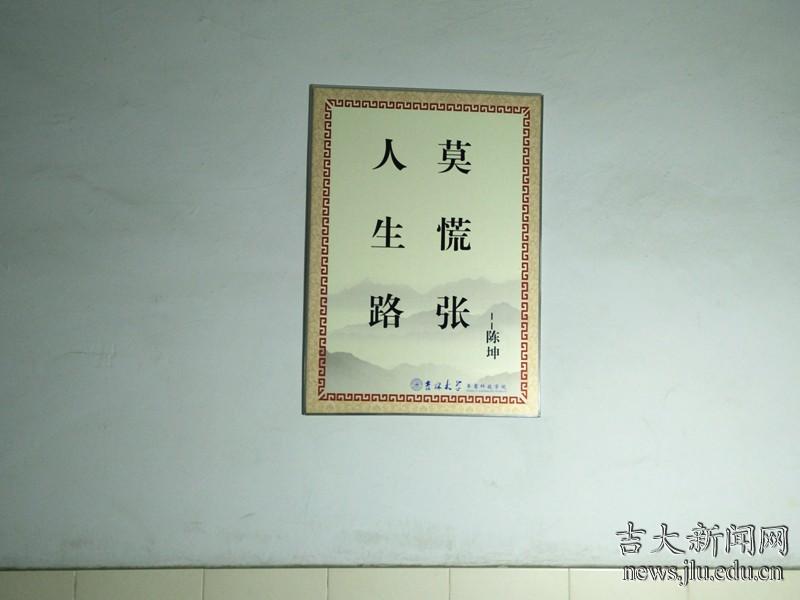 莫慌张
人生路
--陈坤
吉林大学
吉大新闻网
news.jlu.edu.cn